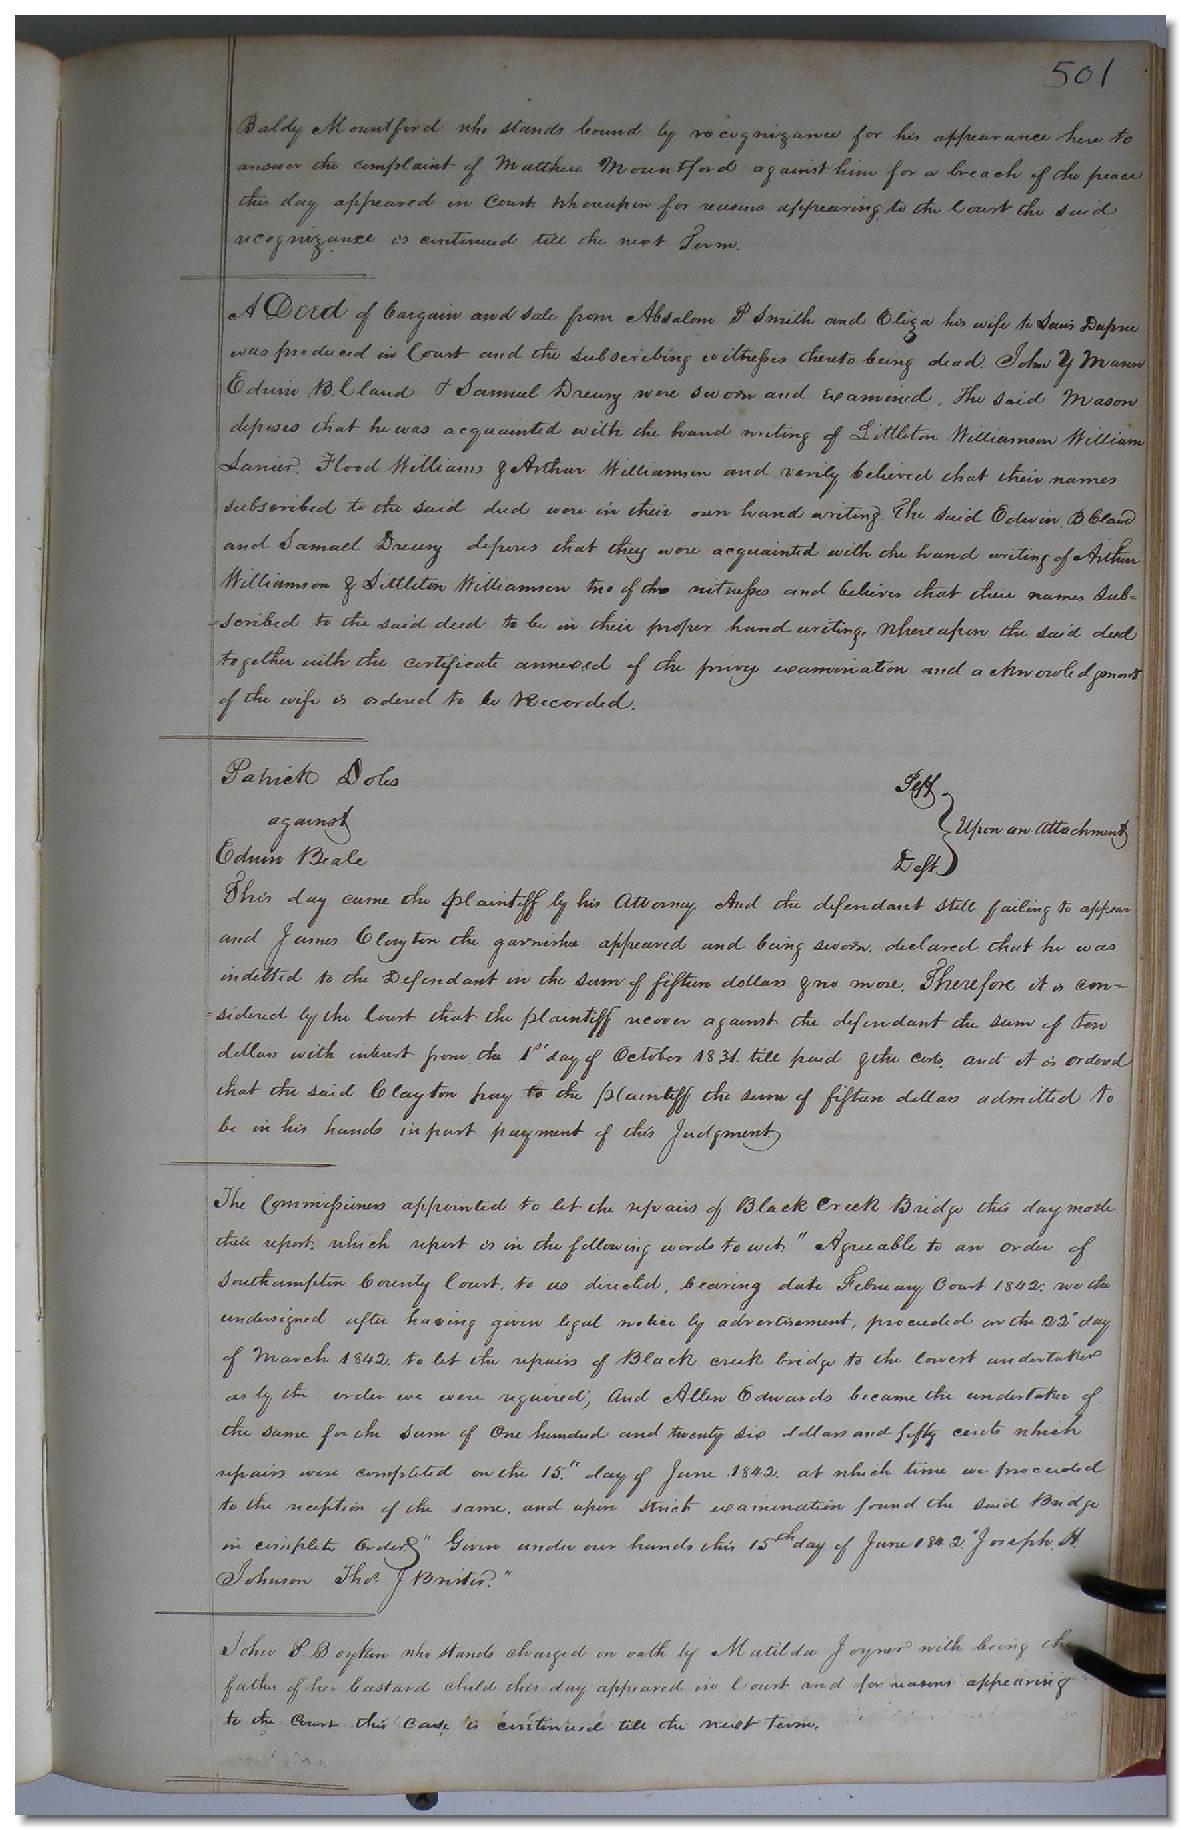 501
Baldy Mountford who stands bound by recognizance for his appearance here to
answer the complaint of Matthew Mountford against him for a breach of the peace
this day appeared in Court Whereupon for reasons appearing to the Court the said
recognizance is continued till the next Term.
A Deed of bargain and sale from Absalom P Smith and Eliza his wife to Dupree
was produced in Court and the subscribing witnesses thereto being dead. John Y Mason
Edwin B Claud & Samuel Drewry were sworn and examined. The said Mason
deposes that he was acquainted with the hand writing of Littleton Williamson William
Lanier. Flood Williams & Arthur Williamson and verily believed that their names
subscribed to the said deed were in their own hand writing. The said Edwin B Claud
and Samuel Drewry deposes that they were acquainted with the hand writing of Arthur
Williamson & Littleton Williamson two of the witnesses and believes that their names sub=
=scribed to the said deed to be in their proper hand writing. Whereupon the said deed
together with the certificate annexed of the privy examination and acknowledgment
of the wife is ordered to be Recorded.
Patrick Doles Pltff
against Upon an Attachment
Edwin Beale Deft
This day came the plaintiff by his Attorney And the defendant still failing to appear
and James Clayton the garnishee appeared and being sworn. declared that he was
indebted to the Defendant in the sum of fifteen dollars & no more. Therefore it is con=
=sidered by the Court that the plaintiff recover against the defendant the sum of ten
dollars with interest from the 1st day of October 1831. till paid & the costs. and it is ordered
that the said Clayton pay to the plaintiff the sum of fifteen dollars admitted to
be in his hands in part payment of this Judgment
The Commissioners appointed to let the repairs of Black Creek Bridge this day made
their report. which report is in the following words to wit. " Agreeable to an order of
Southampton County Court. to us directed, bearing date February Court 1842: we the
undersigned after having given legal notice by advertisement, proceeded on the 22" day
of March 1842. to let the repairs of Black creek bridge to the lowest undertaker
as by the order we were required; And Allen Edwards became the undertaker of
the same for the sum of One hundred and twenty six dollars and fifty cents which
repairs were completed on the 15." day of June 1842. at which time we proceeded
to the reception of the same. and upon strict examination found the said Bridge
in complete Order" Given under our hands this 15th day of June 1842. "Joseph. H.
Johnson Thos. J Britt."
John S Boykin who stands charged on oath by Matilda Joyner with being the
father of her bastard child this day appeared in Court and for reasons appearing
to the Court this Case is continued till the next term.